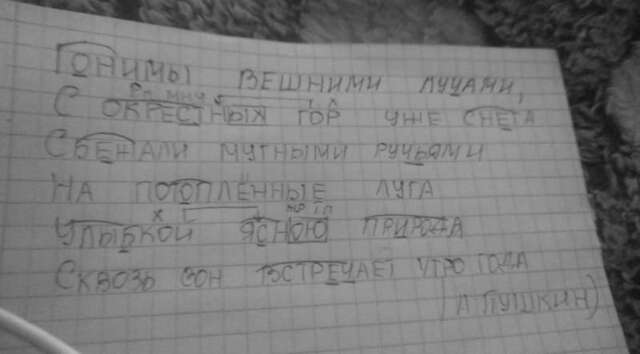 Гонимы вешними лучами,
С окрестных гор уже снега
Сбежали мутными ручьями
На потоплённые луга
Улыбкой ясною природа
Сквозь сон встречает утро года
(А Пушкин)